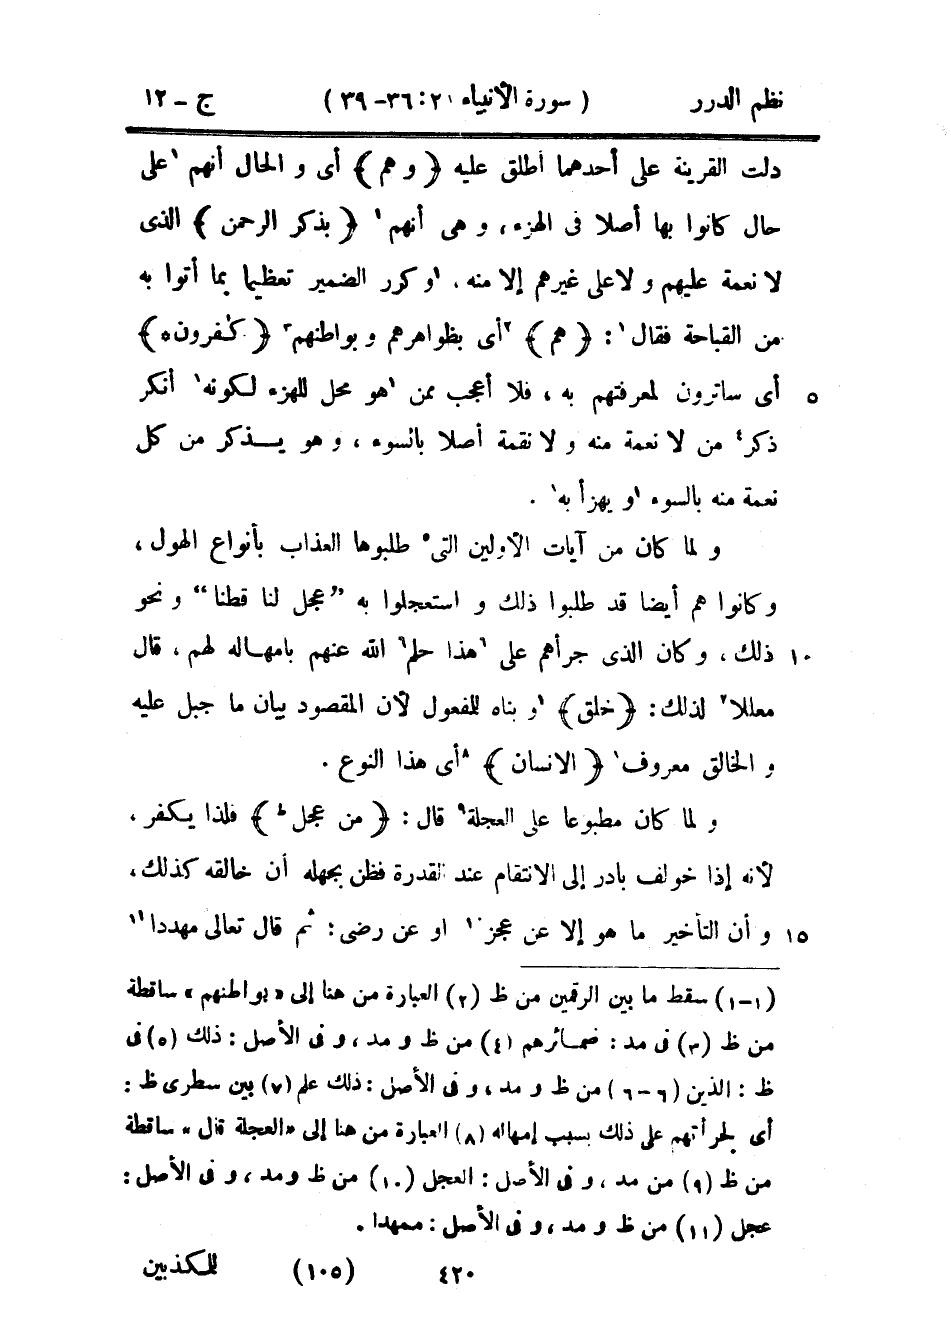 نظم الدرر ( سورة الأنبياء ٢١ : ٣٦ - ٣٩ ) ج - ١٢
دلت القرينة على أحدهما أطلق عليه ﴿ و هم ﴾ أى و الحال أنهم ١على
حال كانوا بها أصلا فى الهزء ، و هى أنهم ١ ﴿ بذكر الرحمن ﴾ الذى
لا نعمة عليهم و لا على غيرهم إلا منه . ١و كرر الضمير تعظيما بما أتوا به
من القباحة فقال١ : ﴿ هم ﴾ ٢أى بظواهرهم و بواطنهم٣ ﴿ كٰفرون ه ﴾
٥ أى ساترون لمعرفتهم به ، فلا أعجب ممن ١هو محل للهزء لكونه١ أنكر
ذكر٤ من لا نعمة منه و لا نقمة أصلا بالسوء ، و هو يـــذكر من كل
نعمة منه بالسوء ١و يهزأ به١ .
و لما كان من آيات الأولين التى٥ طلبوها العذاب بأنواع الهول ،
و كانوا هم أيضا قد طلبوا ذلك و استعجلوا به ”عجل لنا قطنا“ و نحو
١٠ ذلك ، و كان الذى جرأهم على ٦هذا حلم٦ الله عنهم بامهـاله لهم ، قال
معللا٧ لذلك : ﴿ خلق ﴾ ١و بناه للفعول لأن المقصود بيان ما جبل عليه
و الخالق معروف١ ﴿ الانسان ﴾ ٨أى هذا النوع .
و لما كان مطبوعا على العجلة٩ قال : ﴿ من عجل ط ﴾ فلذا يكفر ،
لأنه إذا خولف بادر إلى الانتقام عند القدرة فظن بجهله أن خالقه كذلك ،
١٥ و أن التأخير ما هو إلا عن عجز١٠ او عن رضى : ثم قال تعالى مهددا١١
(١-١) سقط ما بين الرقمين من ظ (٢) العبارة من هنا إلى « بواطنهم » ساقطة
من ظ (٣) فى مد : ضمـائرهم (٤) من ظ و مد ، و فى الأصل : ذلك (٥) فى
ظ : الذين (٦-٦) من ظ و مد ، و فى الأصل : ذلك علم (٧) بين سطرى ظ :
أى لجرأتهم على ذلك بسبب إمهاله (٨) العبارة من هنا إلى « العجلة قال » ساقطة
من ظ (٩) من مد ، و فى الأصل : العجل (١٠) من ظ و مد ، و فى الأصل :
عجل (١١) من ظ و مد ، و فى الأصل : ممهدا .
٤٢٠ (١٠٥) للكذبين